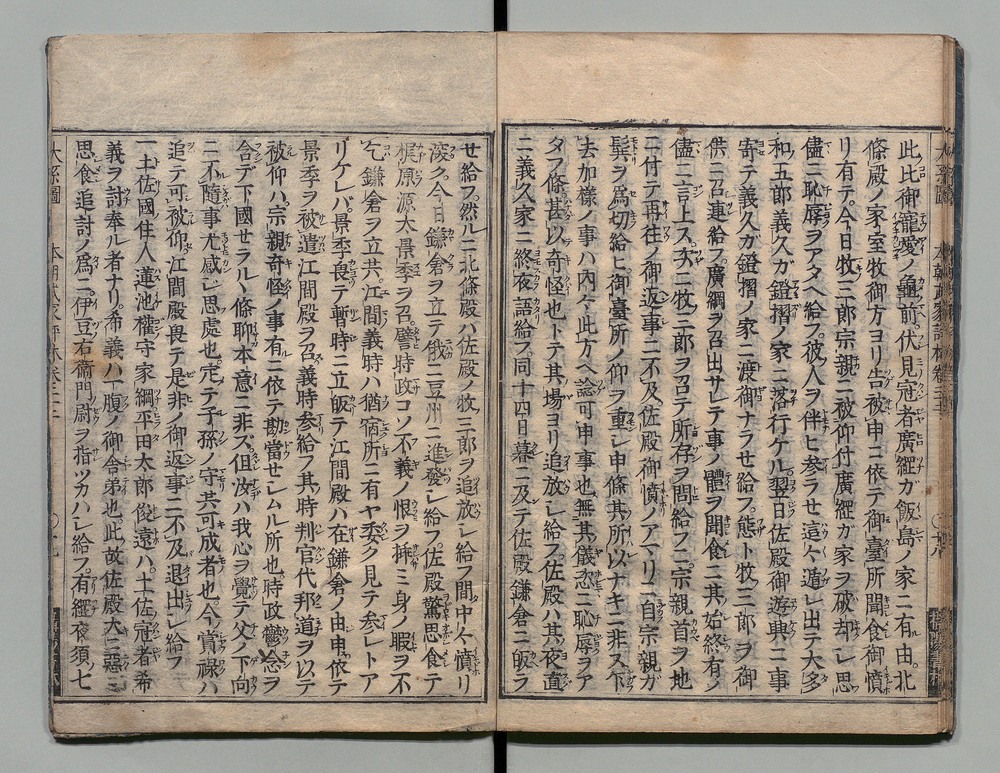 此比御寵愛ノ龜前伏見冠者廣經ガ飯島ノ家ニ有由。北
條殿ノ家至牧御方ヨリ告被申ニ依テ御臺所聞食御憤
リ有テ。今日牧三郎宗親ニ被仰付廣經カ家ヲ破却シ思
儘ニ恥辱ヲアタヘ給フ彼人ヲ伴ヒ参ラせ這々遁レ出テ大多
和五郎義久ガ鐙摺ノ家ニ落行ケル。翌日佐殿御遊興ニ事
寄テ義久カ鐙摺ノ家ニ渡御ナラせ給フ。態ト牧三郎ヲ御
供ニ召連給フ。廣綱ヲ召出サレテ事ノ體ヲ聞食ニ其始終有ノ
儘ニ言上ス。次ニ牧三郎ヲ召テ所存ヲ問給フニ宗親首ヲ地
ニ付テ再往ノ御返事ニ不及佐殿御憤ノアマリニ自宗親ガ
髻ヲ爲切給ヒ御臺所ノ仰ヲ重レ申條其所以ナキニ非ス。下
去加樣ノ事ハ内々此方ヘ論可申事也。無其儀忽ニ恥辱ヲア
タフ條甚以奇怪也トテ其場ヨリ追放シ給フ。佐殿ハ其夜直
ニ義久家ニ終夜語給フ。同十四日暮ニ及テ佐殿鎌倉ニ皈ラ
せ給フ。然ルニ北條殿ハ佐殿ノ牧三郎ヲ追放シ給フ間中々憤リ
深ク今日鎌倉ヲ立テ俄ニ豆州ニ進發シ給フ佐殿驚思食テ
梶原源太景季ヲ召譬時政コソ不義ノ恨ヲ挿ミ身ノ暇ヲ不
乞鎌倉ヲ立共。江間義時ハ猶宿所ニ有ヤ委ク見テ参レトア
リケレハ。景季畏テ暫時ニ立皈テ江間殿ハ在鎌倉ノ由申依テ
景季ヲ被遣江間殿ヲ召。義時参給フ其時判官代邦道ヲ以テ
被仰ハ。宗親奇怪ノ事有ニ依テ勘當せシムル所也。時政鬱念ヲ
合テ下國せラル丶條聊本意ニ非ズ。但汝ハ我心ヲ覺テ父ノ下向
ニ不隨事尤感シ思處也。定テ子孫ノ守共可成者也。今ノ賞祿ハ
追テ可被仰。江間殿畏テ是非ノ御返事ニ不及退出シ給フ
一土佐國住人蓮池權守家綱平田太郎俊遠ハ。土佐冠者希
義ヲ討奉ル者ナリ。希義ハ一腹ノ御舎弟也。此故佐殿大ニ惡ニ
思食追討ノ爲ニ伊豆右衛門尉ヲ指ツカハシ給フ。有經夜須ノ七